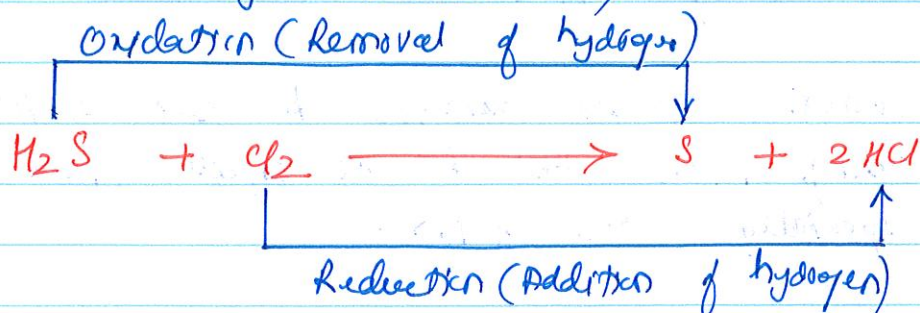 Oxidation (Removal of hydrogen)
H2S + Cl2 → S + 2 HCl
Reduction (Addition of hydrogen)